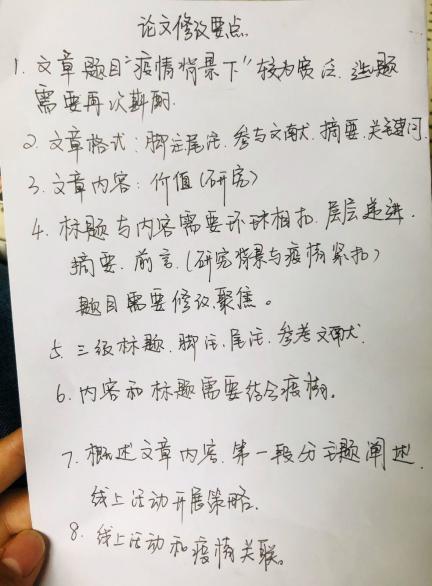 论文修改要点
1. 文章题目"疫情背景下"较为宽泛、选题
需要再次斟酌.
2. 文章格式:脚注尾注、参考文献、摘要、关键词
3. 文章内容:价值(研究)
4. 标题与内容需要环环相扣、层层递进.
摘要、前言、(研究背景与疫情紧扣)
题目需要修改、聚焦。
5. 三级标题、脚注、尾注、参考文献.
6. 内容和标题需要结合疫情。
7. 概述文章内容、第一段分主题阐述.
线上活动开展策略.
8. 线上活动和疫情关联。